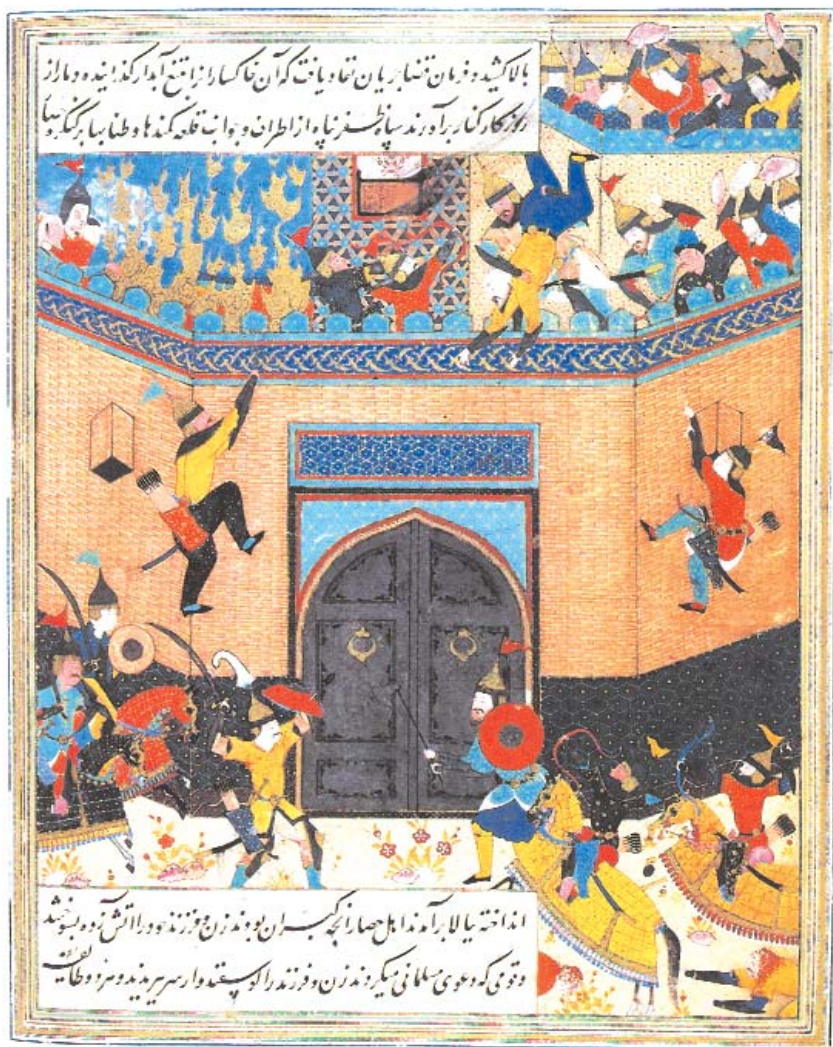 بالا کشید و فرمان قضا جریان نفاد یافت که آن خاکسار را از تیغ آبدار گذرانیده دمار از
روزکار کفار برآورند سپاه ظفر پناه از اطراف و جوانب قلعه کمندها و طنابها بر
انداخته ببالا برآمدند اهل حصار آنچه کبران بودند زن و فرزند خود را آتش زده بسوختند
و قومی که دعوی مسلمانی میکردند زن و فرزند را کوسفندوار سر بریدند و هر دو طایفه